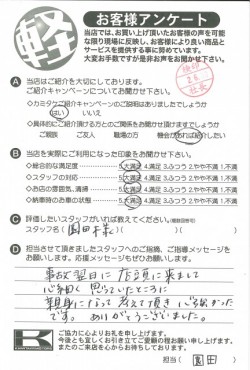 軽
お客様アンケート
当店では、お買い上げ頂いたお客様の声を可能
な限り現場に反映し、お客様により良い商品と
サービスを提供する事に努めています。
大変お手数ですが是非お声をお聞かせ下さい。
A 当店はご紹介を大切にしております。
ご紹介キャンペーンについてお聞かせ下さい。
◇カミタケご紹介キャンペーンのご説明はありましたでしょうか
はい いいえ
◇具体的にご紹介頂ける方とのご関係をお聞かせ頂けますでしょうか
ご親族 ご友人 職場の方 機会があれば紹介したい
B 当店を実際にご利用になった印象をお聞かせ下さい。
◇総合的な満足度 5.大満足 4.満足 3.ふつう 2.やや不満 1.不満
◇スタッフの対応 5.大満足 4.満足 3.ふつう 2.やや不満 1.不満
◇お店の雰囲気、清掃 5.大満足 4.満足 3.ふつう 2.やや不満 1.不満
◇納車時のお車の状態 5.大満足 4.満足 3.ふつう 2.やや不満 1.不満
C 評価したいスタッフがいれば教えてください。(複数回答可)
スタッフ名( 園田様 )
D 担当させて頂きましたスタッフへのご指摘、ご指導メッセージを
お願いします。応援メッセージもぜひお願いします。
事故翌日に店頭に来まして
心細く思っていたところに
親身になって考えて頂き心強かった
です。ありがとうございました。
K
ご協力に心よりお礼を申し上げます。
今後とも宜しくお引き立てご愛顧の程お願い申し上げます。
またのご来店を心からお待ちしております。
担当( 園田 )